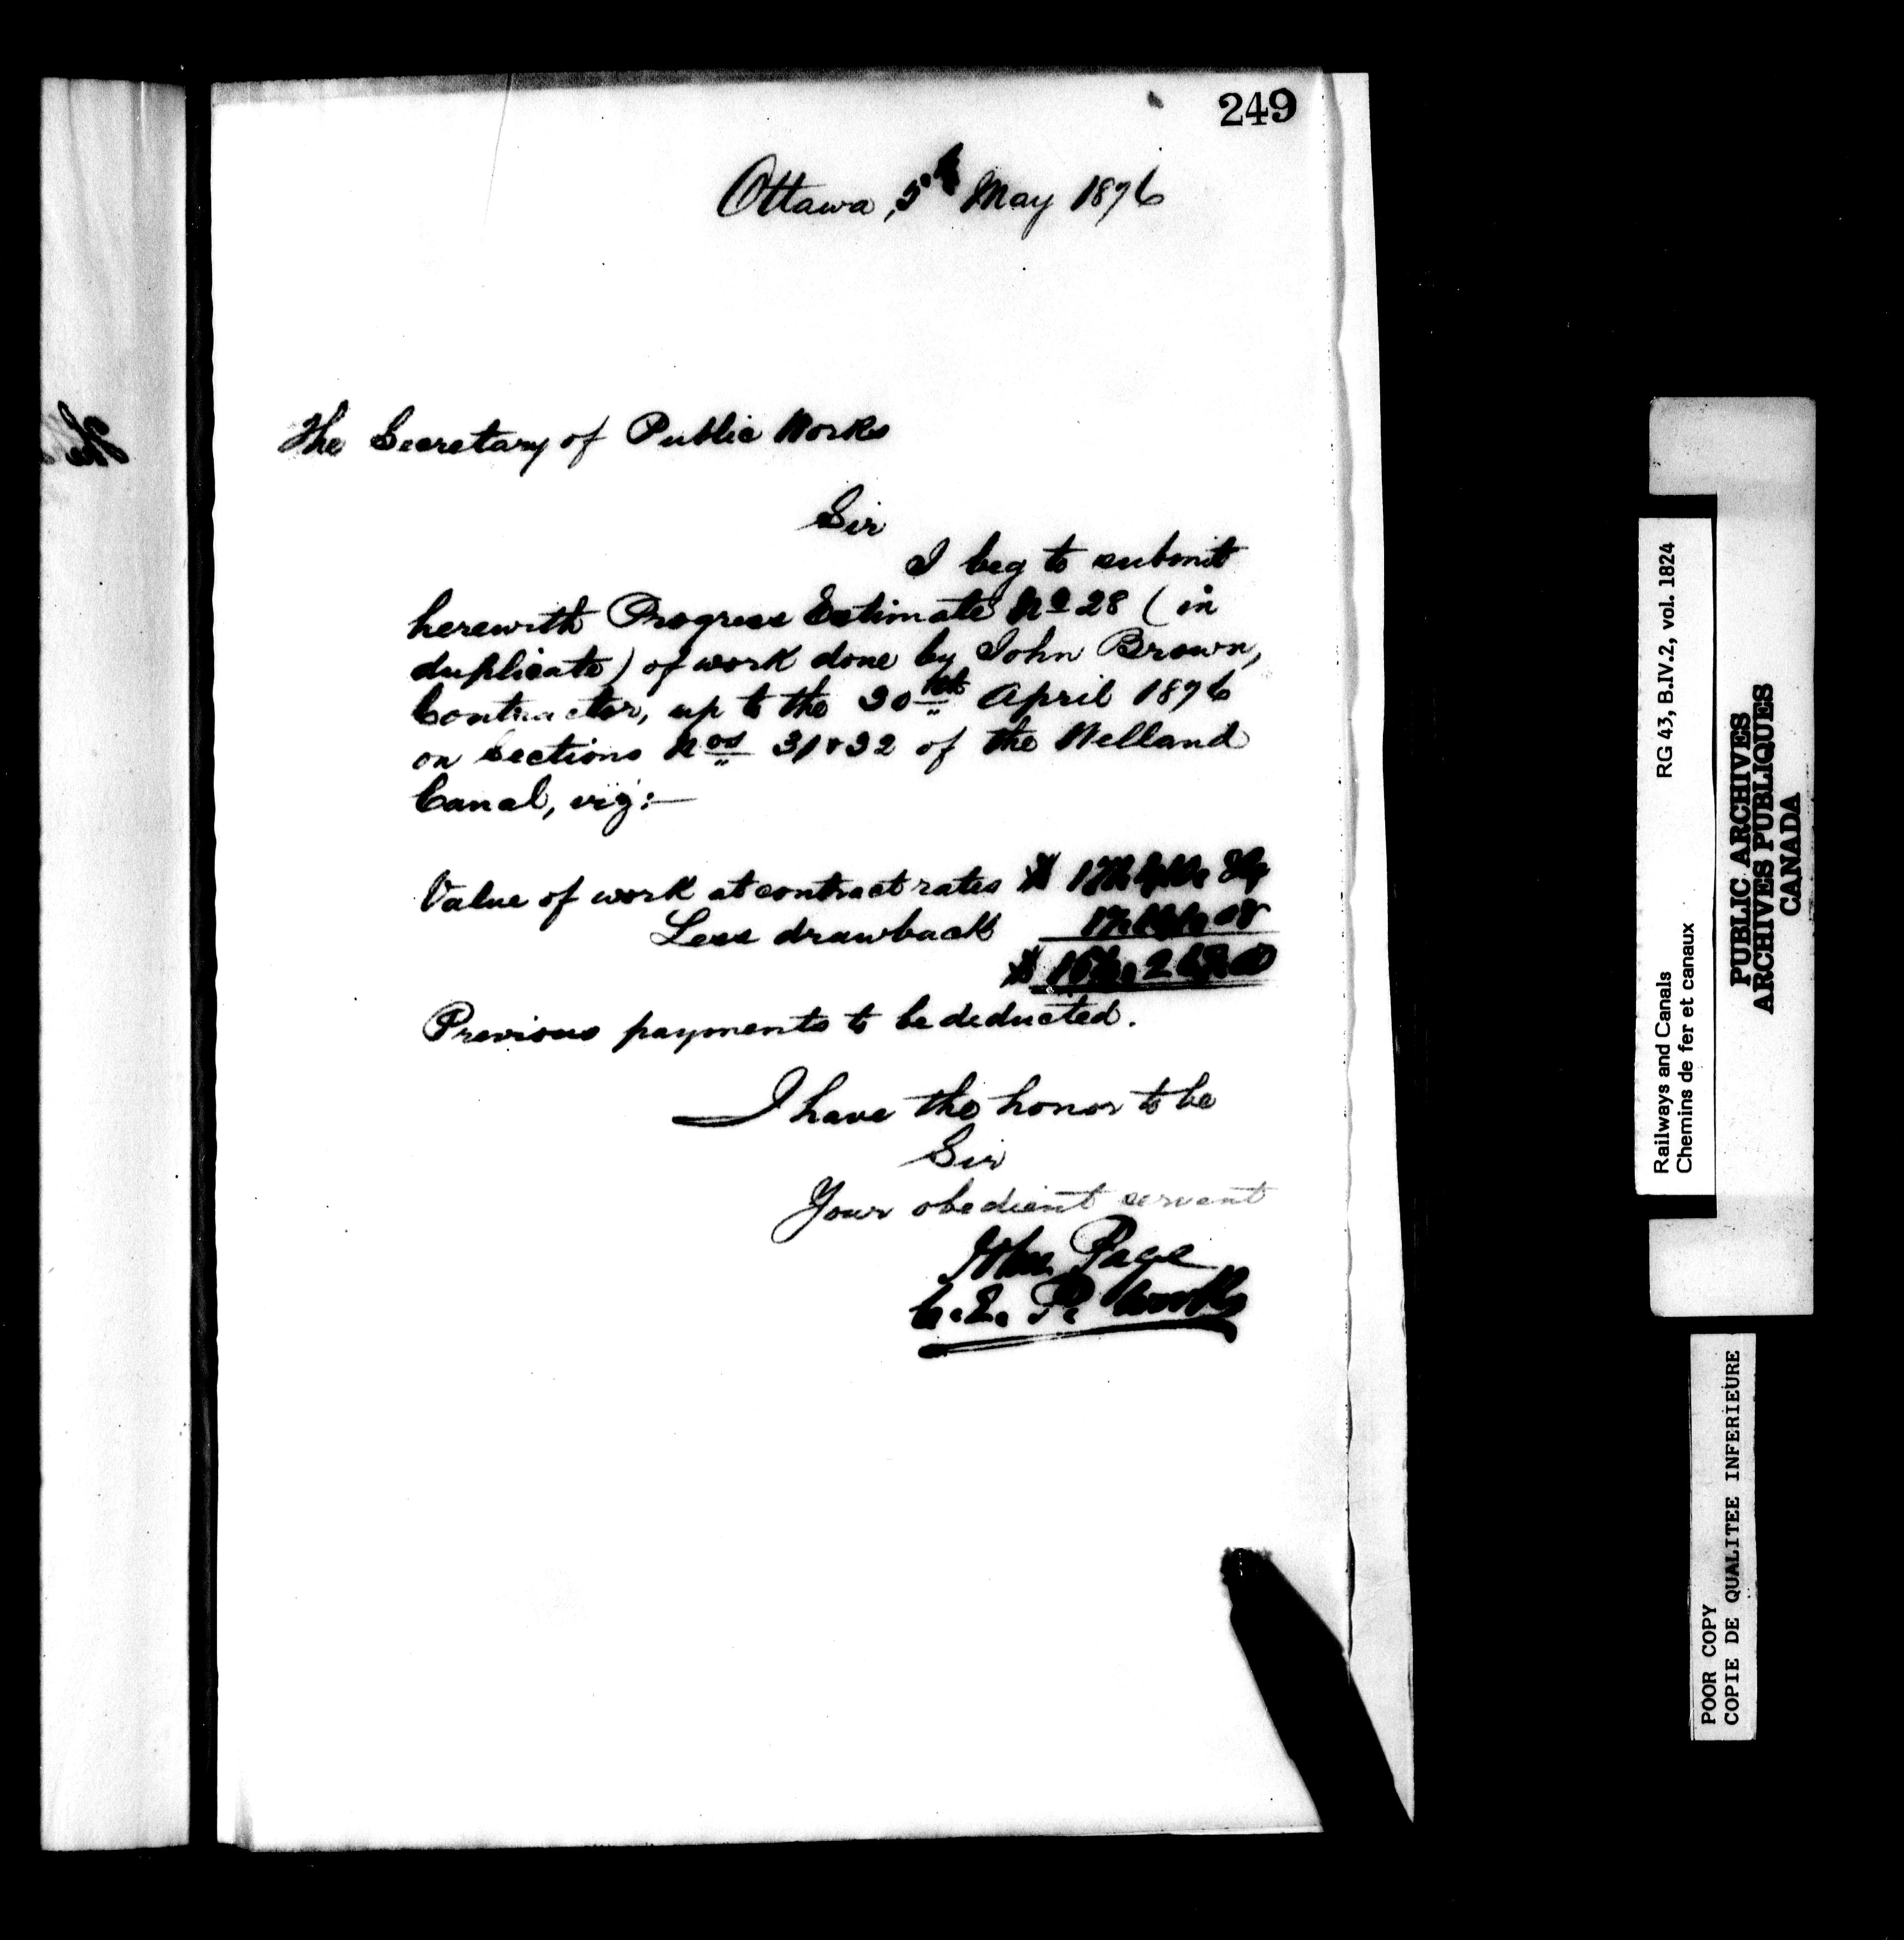 249
Ottawa, 5th May 1876
The Secretary of Public Works
Sir
I beg to submit
herewith Progress Estimate No 28 (in
duplicate) of work done by John Brown,
Contractor, up to the 30th April 1876
on Sections Nos 31 & 32 of the Welland
Canal, viz:—
Value of work at contract rates $
Less drawback
$
Previous payments to be deducted.
I have the honor to be
Sir
Your obedient servant
John Page
C. E. P. Works
Railways and Canals RG 43, B.IV.2, vol. 1824
Chemins de fer et canaux
PUBLIC ARCHIVES
ARCHIVES PUBLIQUES
CANADA
POOR COPY
COPIE DE QUALITEE INFERIEURE